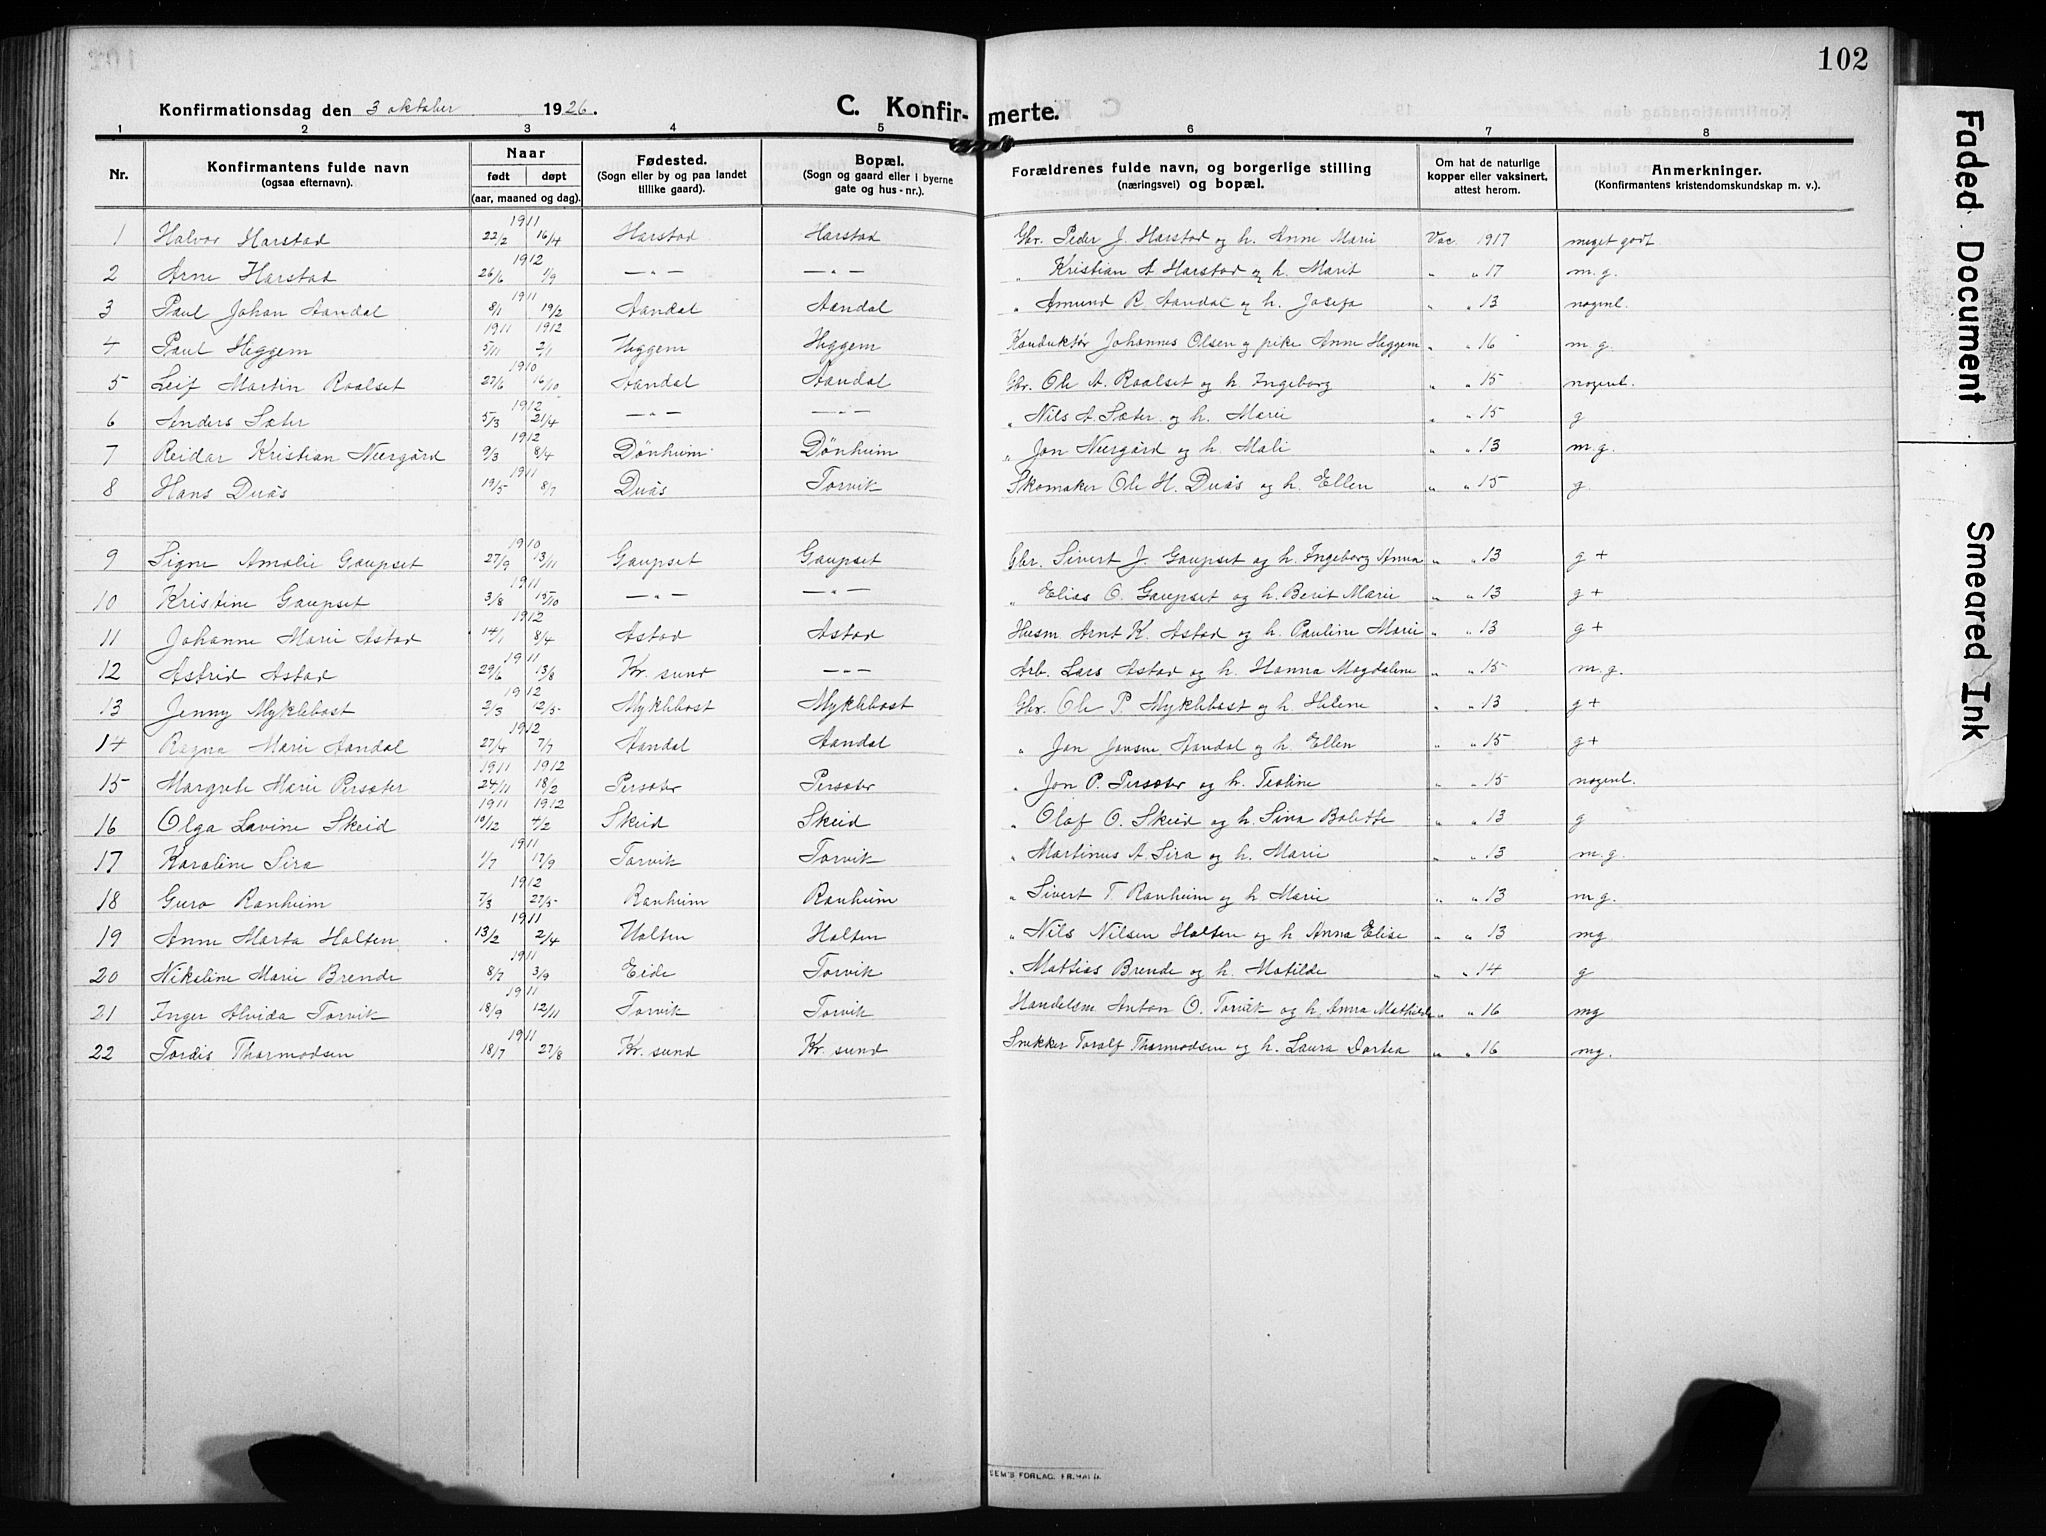 102
Konfirmationsdag den 3 oktober 1926. C. Konfirmerte.
1 2 3 4 5 6 7 8
Nr. Konfirmantens fulde navn (ogsaa efternavn). Naar født døpt (aar, maaned og dag). Fødested. (Sogn eller by og paa landet tillike gaard). Bopæl. (Sogn og gaard eller i byerne gate og hus-nr.). Forældrenes fulde navn, og borgerlige stilling (næringsvei) og bopæl. Om hat de naturlige kopper eller vaksinert, attest herom. Anmerkninger. (Konfirmantens kristendomskundskap m. v.).
1 Halvor Harstad 1911 22/2 16/4 Harstad Harstad Gbr. Peder J. Harstad og h. Anne Marie Vac. 1917 meget godt
2 Arne Harstad 1912 26/6 1/9 —"— —"— " Kristian A Harstad og h. Marit " " 17 m.g.
3 Paul Johan Aandal 1911 8/1 19/2 Aandal Aandal " Amund R. Aandal og h. Josefa " " 13 nogenl.
4 Paul Heggem 1911 1912 5/11 2/1 Heggem Heggem Konduktør Johannes Olsen og pike Anne Heggem " " 16 m.g.
5 Leif Martin Roalset 1910 27/6 16/10 Aandal Aandal Gbr. Ole A. Roalset og h. Ingeborg " " 15 nogenl.
6 Anders Sæter 1912 5/3 21/4 —"— —"— " Nils A. Sæter og h. Marie " " 15 g
7 Reidar Kristian Neergård 1912 9/3 8/4 Dønheim Dønheim " Jon Neergård og h. Mali " " 13 m.g.
8 Hans Duås 1911 19/5 8/7 Duås Torvik Skomaker Ole H. Duås og h. Ellen " " 15 g.
9 Signe Amalie Gaupset 1910 27/9 13/11 Gaupset Gaupset Gbr. Sivert J. Gaupset og h. Ingeborg Anna " " 13 g +
10 Kristine Gaupset 1911 3/8 15/10 —"— —"— " Elias O. Gaupset og h. Berit Marie " " 13 g +
11 Johanne Marie Astad 1912 14/1 8/4 Astad Astad Husm. Arnt K. Astad og h. Pauline Marie " " 13 g +
12 Astrid Astad 1911 29/6 13/8 Kr. sund —"— Arb. Lars Astad og h. Hanna Magdalene " " 15 m.g.
13 Jenny Myklebost 1912 2/3 12/5 Myklebost Myklebost Gbr. Ole P. Myklebost og h. Helene " " 13 g +
14 Ragna Marie Aandal 1912 27/4 7/7 Aandal Aandal " Jon Jonsen Aandal og h. Ellen " " 15 g +
15 Margrete Marie Persæter 1911 1912 24/11 18/2 Persæter Persæter " Jon P. Persæter og h. Teoline " " 15 nogenl.
16 Olga Lavine Skeid 1911 1912 10/12 4/2 Skeid Skeid " Olaf O. Skeid og h. Sina Bolette " " 13 g
17 Karoline Sira 1911 1/7 17/9 Torvik Torvik " Martinus A. Sira og h. Marie " " 13 m.g.
18 Guro Ranheim 1912 7/3 27/5 Ranheim Ranheim " Sivert T Ranheim og h. Marie " " 13 m.g.
19 Anne Marta Holten 1911 13/2 2/4 Holten Holten " Nils Nilsen Holten og h Anna Elise " " 13 mg
20 Nikoline Marie Brende 1911 8/7 3/9 Eide Torvik " Mattias Brende og h. Matilde " " 14 g
21 Inger Alvida Torvik 1911 18/9 12/11 Torvik Torvik Handelsm Anton O. Torvik og h. Anna Mathilde " " 16 mg
22 Tordis Thormodsen 1911 18/7 27/8 Kr. sund Kr. sund Snekker Toralf Thormodsen og h. Laura Dortea " " 16 mg.
Faded Document
Smeared Ink